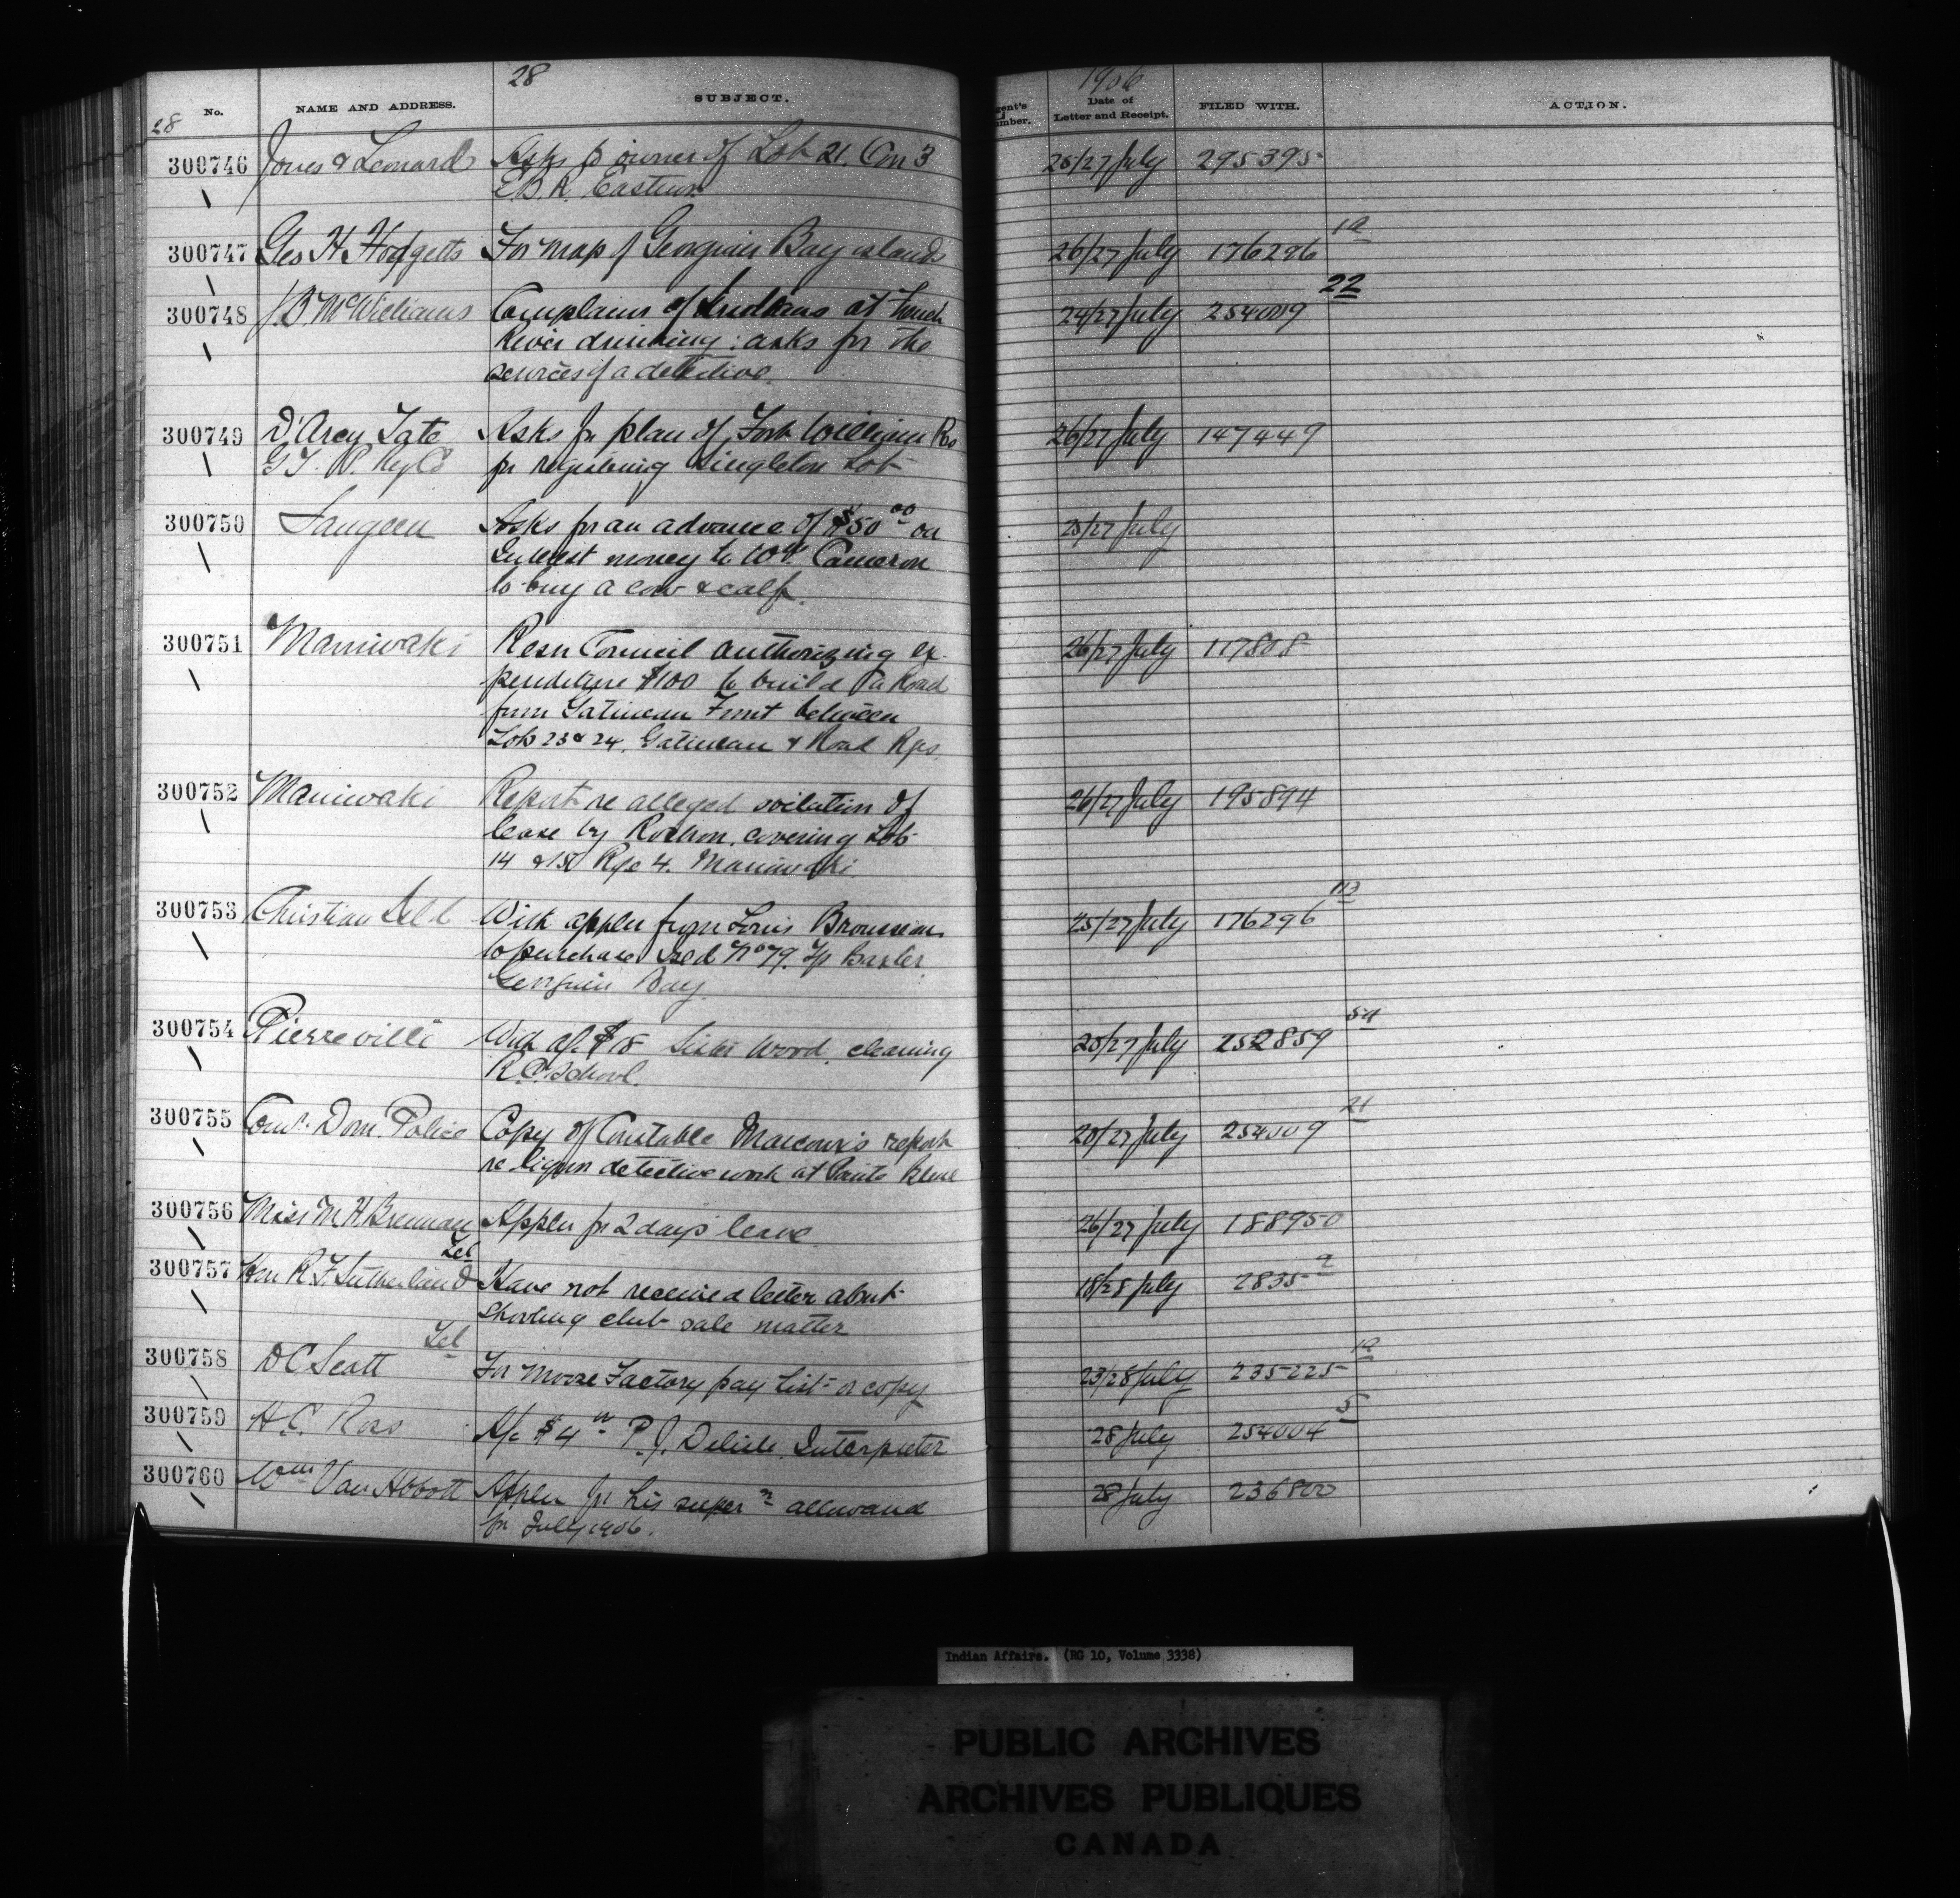 28
1906
No.
NAME AND ADDRESS.
SUBJECT.
gent's
umber.
Date of
Letter and Receipt.
FILED WITH.
ACTION.
28
300746 Jones & Leonard Asks p owner of Lot 21. Con 3 26/27 July 295395
E.B.R. Eastnor
300747 Geo H. Hodgetts For map of Georgian Bay islands 26/27 July 176296 12
300748 J.B. McWilliams Complains of Indians at French 24/27 July 254009 22
River drinking : asks for the
services of a detective.
300749 D'Arcy Tate Asks for plan of Fort William Res 26/27 July 147449
G.T.P. Ry Co for registering Singleton Lot
300750 Saugeen Asks for an advance of $50 00 on 25/27 July
Interest money to Wm. Cameron
to buy a cow & calf.
300751 Maniwaki Resn Council authorizing ex- 26/27 July 117808
penditure $100 to build a Road
from Gatineau Front between
Lots 23 & 24. Gatineau & Road Rgs
300752 Maniwaki Report re alleged violation of 26/27 July 195894
lease by Rochon, covering Lots
14 & 15 Rge 4. Maniwaki.
300753 Christian Isld With appln from Louis 25/27 July 176296 113
to purchase Isld No 79. Tp Baxter
Georgian Bay.
300754 Pierreville With a/c $15 Sister Wood, cleaning 25/27 July 252859 54
R.C. School.
300755 Comr. Dom. Police Copy of Constable Marcoux's report 20/27 July 254009 21
re liquor detective work at Pointe Bleue
300756 Miss M H Brennan Appln for 2 days leave 26/27 July 188950
300757 Hon R.F. Sutherland Tel Have not received letter about 18/28 July 2835 2
shooting club sale matter
300758 D C Scott Tel For Moose Factory pay list or copy 23/28 July 235225 12
300759 H.C. Ross A/c $4 00 P.J. Delisle Interpreter 28 July 254004 5
300760 Wm Van Abbott Appln for his supern allowance 28 July 236800
for July 1906.
Indian Affairs. (RG 10, Volume 3338)
PUBLIC ARCHIVES
ARCHIVES PUBLIQUES
CANADA